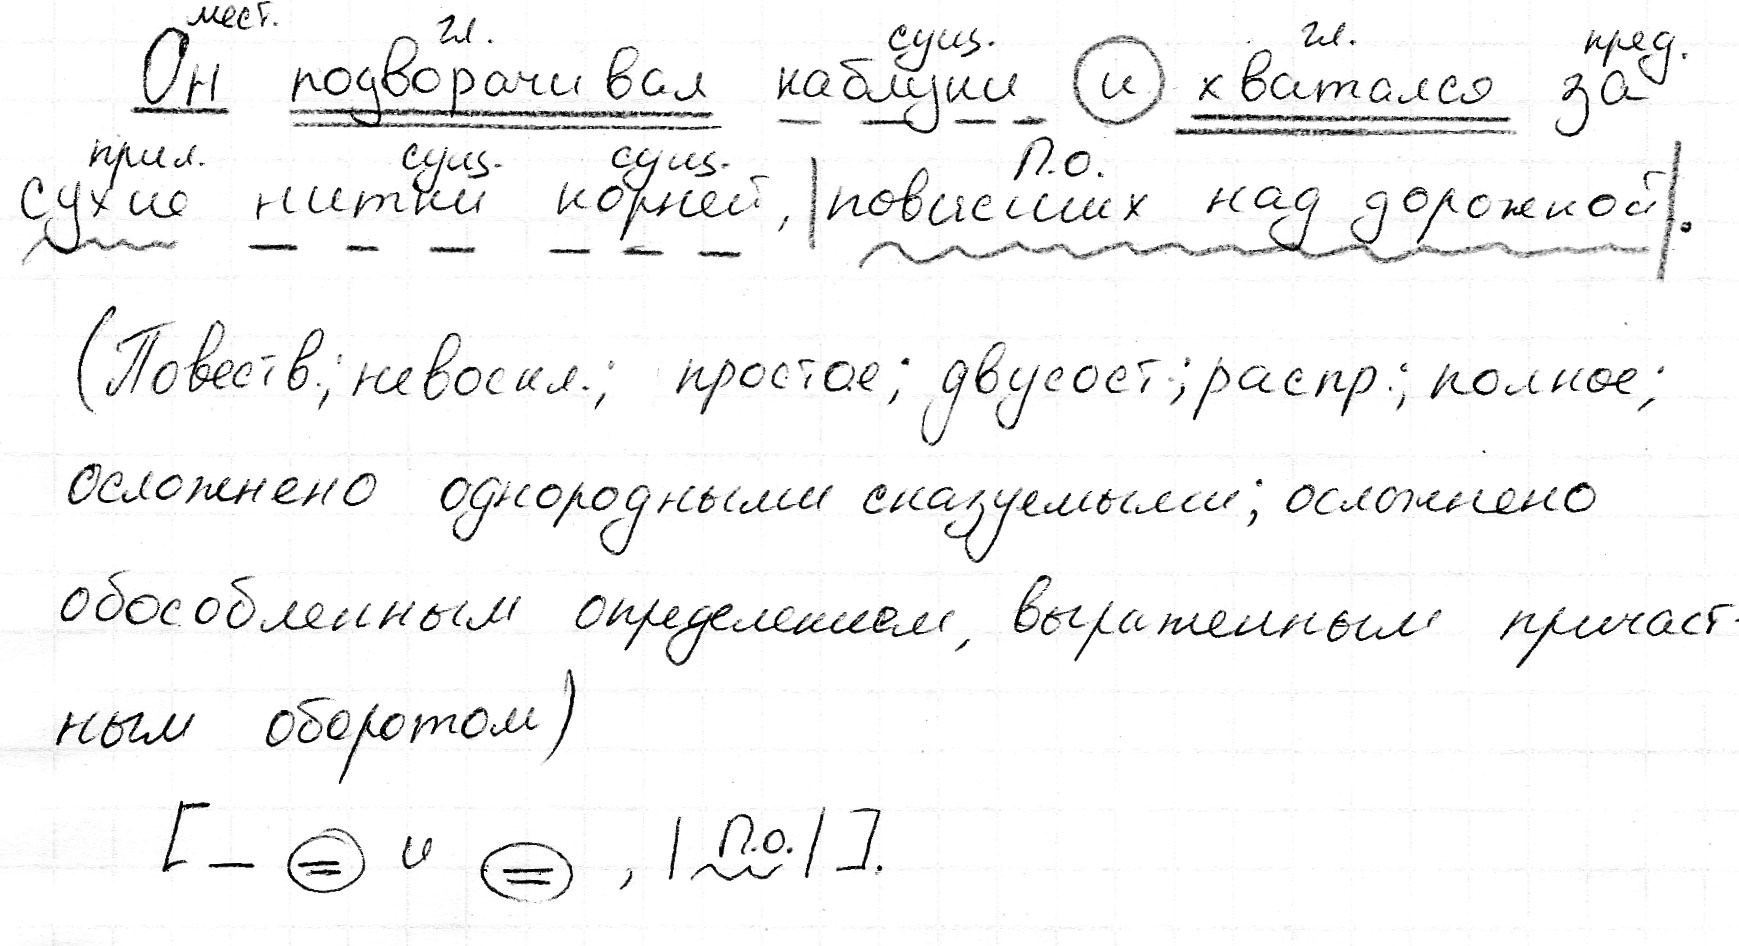 мест. гл. сущ. гл. пред.
Он подворачивал каблуки и хватался за
прил. сущ. сущ. П.О.
сухие нитки корней, |повисших над дорожкой|.
(Повеств.; невоскл.; простое; двусост.; распр.; полное;
осложнено однородными сказуемыми; осложнено
обособленным определением, выраженным причаст-
ным оборотом)
[— = и =, |П.О.|].